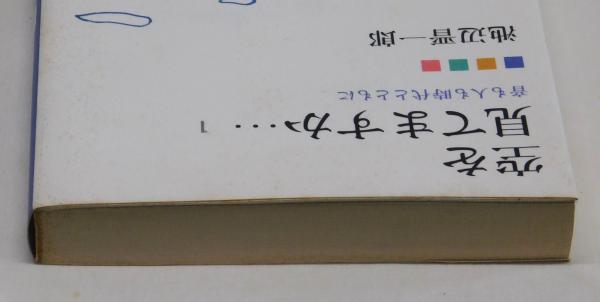 空を
見てますか… 1
音も人も時代とともに
池辺晋一郎